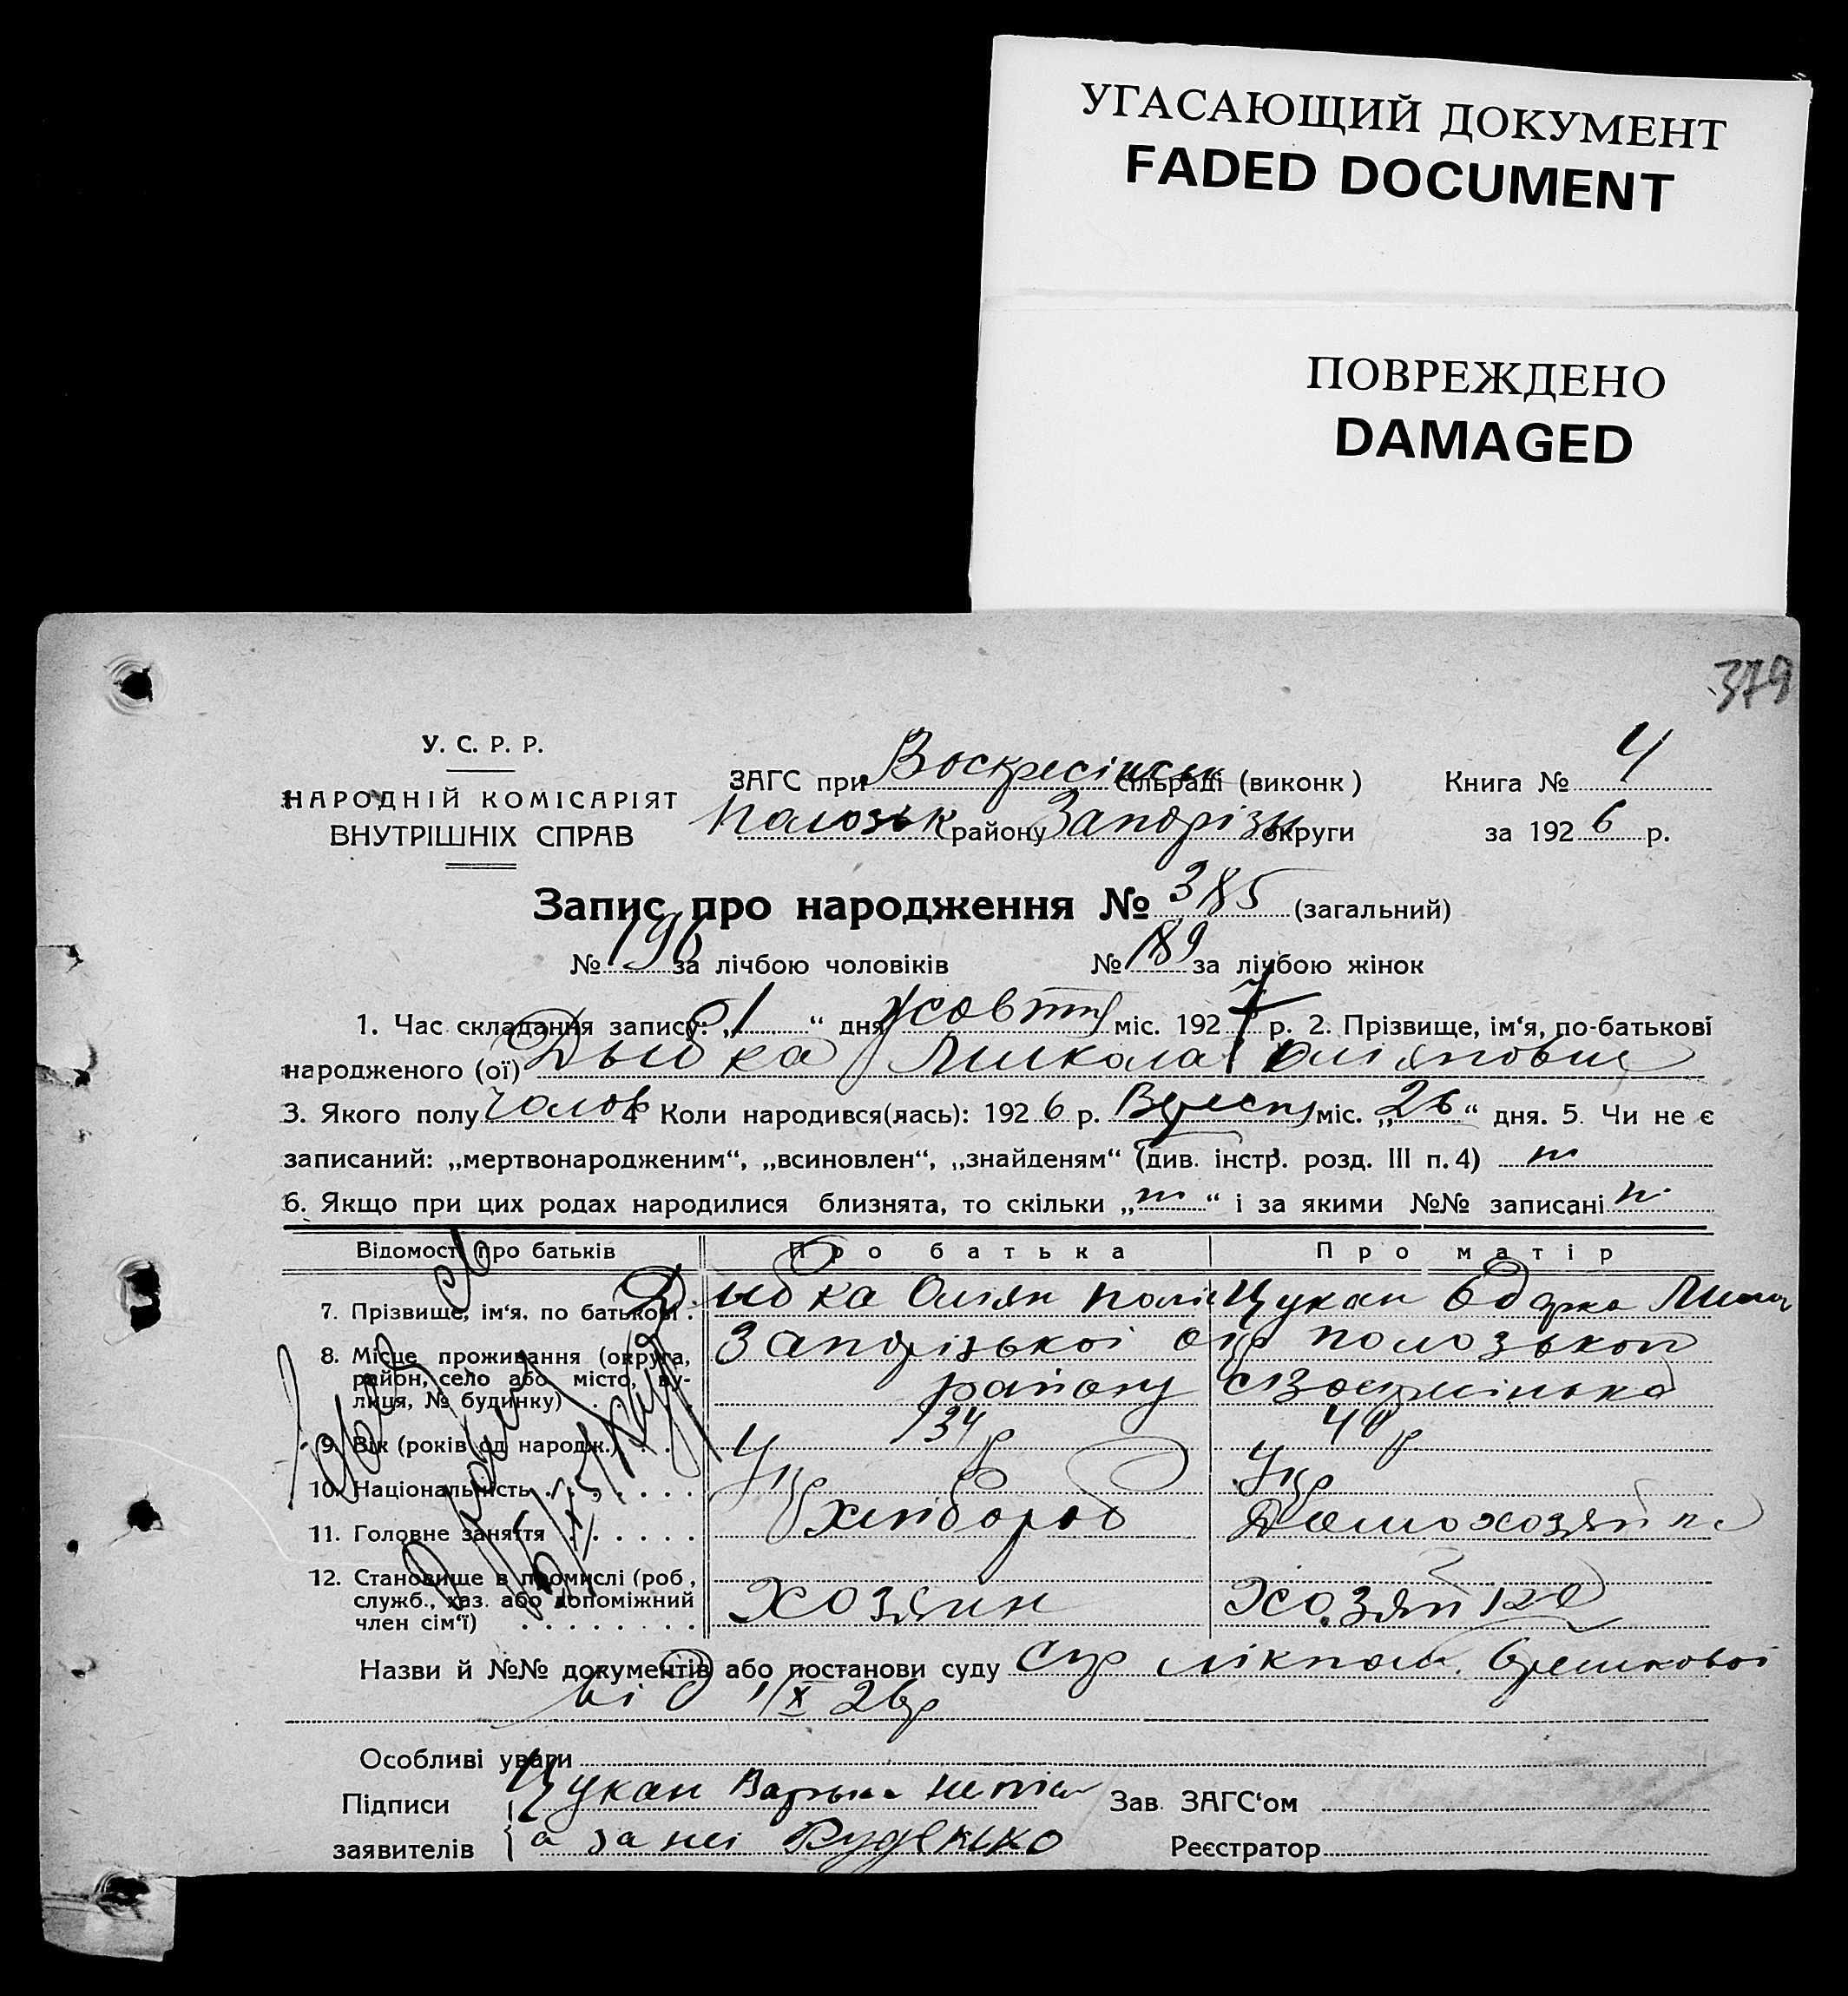 УГАСАЮЩИЙ ДОКУМЕНТ
FADED DOCUMENT
ПОВРЕЖДЕНО
DAMAGED
379
У. С. Р. Р.
НАРОДНІЙ КОМІСАРІЯТ
ВНУТРІШНІХ СПРАВ
ЗАГС при Воскресінськ сільраді (виконк) Книга № 4
Полозьк району Запоріз округи за 1926 р.
Запис про народження № 385 (загальний)
№ 196 за лічбою чоловіків № 189 за лічбою жінок
1. Час складання запису: „1“ дня жовтня міс. 1927 р. 2. Прізвище, ім‘я, по-батькові
народженого (ої) Дыбка Микола Юліянович
3. Якого полу чолов 4 Коли народився(лась): 1926 р. Вересня міс. „26“ дня. 5. Чи не є
записаний: „мертвонародженим“, „всиновлен“, „знайденям“ (див. інстр. розд. III п. 4)
6. Якщо при цих родах народилися близнята, то скільки „ “ і за якими №№ записані
Відомості про батьків Про батька Про матір
7. Прізвище, ім‘я, по батькові . Дыбка Оліян Цукан Одарка
8. Місце проживання (округа, Запорізької окр Полозької
район, село або місто, ву- району
лиця, № будинку)
9. Вік (років од народж.) 34 р 40 р
10. Національність Укр Укр
11. Головне заняття хлібороб Домохозяйка
12. Становище в промислі (роб.,
служб., хаз. або допоміжний хозяин хозяйка
член сім‘ї)
Назви й №№ документів або постанови суду
від 1/X 26р
Особливі уваги
Підписи Цукан Варька непись Зав. ЗАГС‘ом
заявителів а за неї Руденко Реєстратор